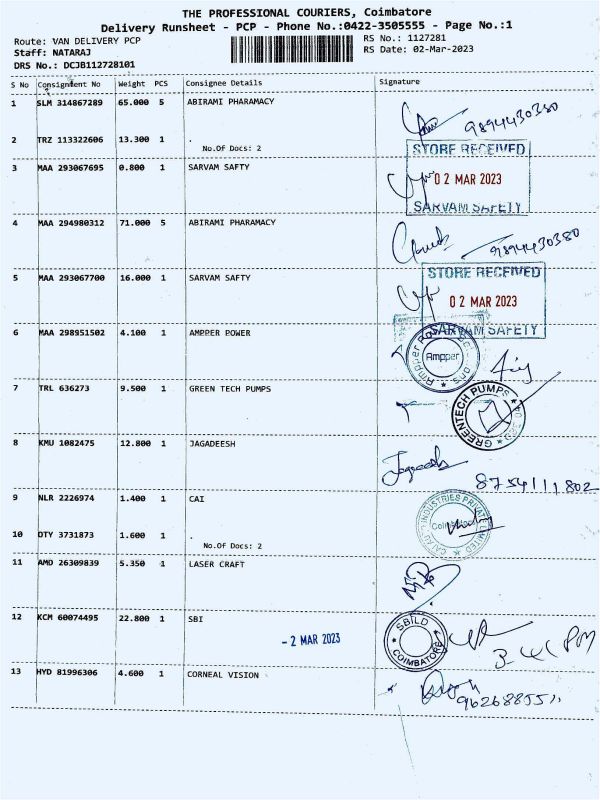 THE PROFESSIONAL COURIERS, Coimbatore
Delivery Runsheet - PCP - Phone No.:0422-3505555 - Page No.:1
Route: VAN DELIVERY PCP
Staff: NATARAJ
DRS No.: DCJB112728101
RS No.: 1127281
RS Date: 02-Mar-2023
S No Consignment No Weight PCS Consignee Details Signature
1 SLM 314867289 65.000 5 ABIRAMI PHARAMACY
9894430380
2 TRZ 113322606 13.300 1 .
No.Of Docs: 2
STORE RECEIVED
3 MAA 293067695 0.800 1 SARVAM SAFTY
02 MAR 2023
SARVAM SAFETY
4 MAA 294980312 71.000 5 ABIRAMI PHARAMACY
9894430380
STORE RECEIVED
5 MAA 293067700 16.000 1 SARVAM SAFTY
02 MAR 2023
SARVAM SAFETY
6 MAA 298951502 4.100 1 AMPPER POWER
Ampper
7 TRL 636273 9.500 1 GREEN TECH PUMPS
GREENTECH PUMPS
8 KMU 1082475 12.800 1 JAGADEESH
Jagadeesh
8754111802
9 NLR 2226974 1.400 1 CAI
INDUSTRIES PRIVATE LIMITED
Coimbatore
10 OTY 3731873 1.600 1 .
No.Of Docs: 2
11 AMD 26309839 5.350 1 LASER CRAFT
12 KCM 60074495 22.800 1 SBI
- 2 MAR 2023
SBILD
COIMBATORE
13 HYD 81996306 4.600 1 CORNEAL VISION